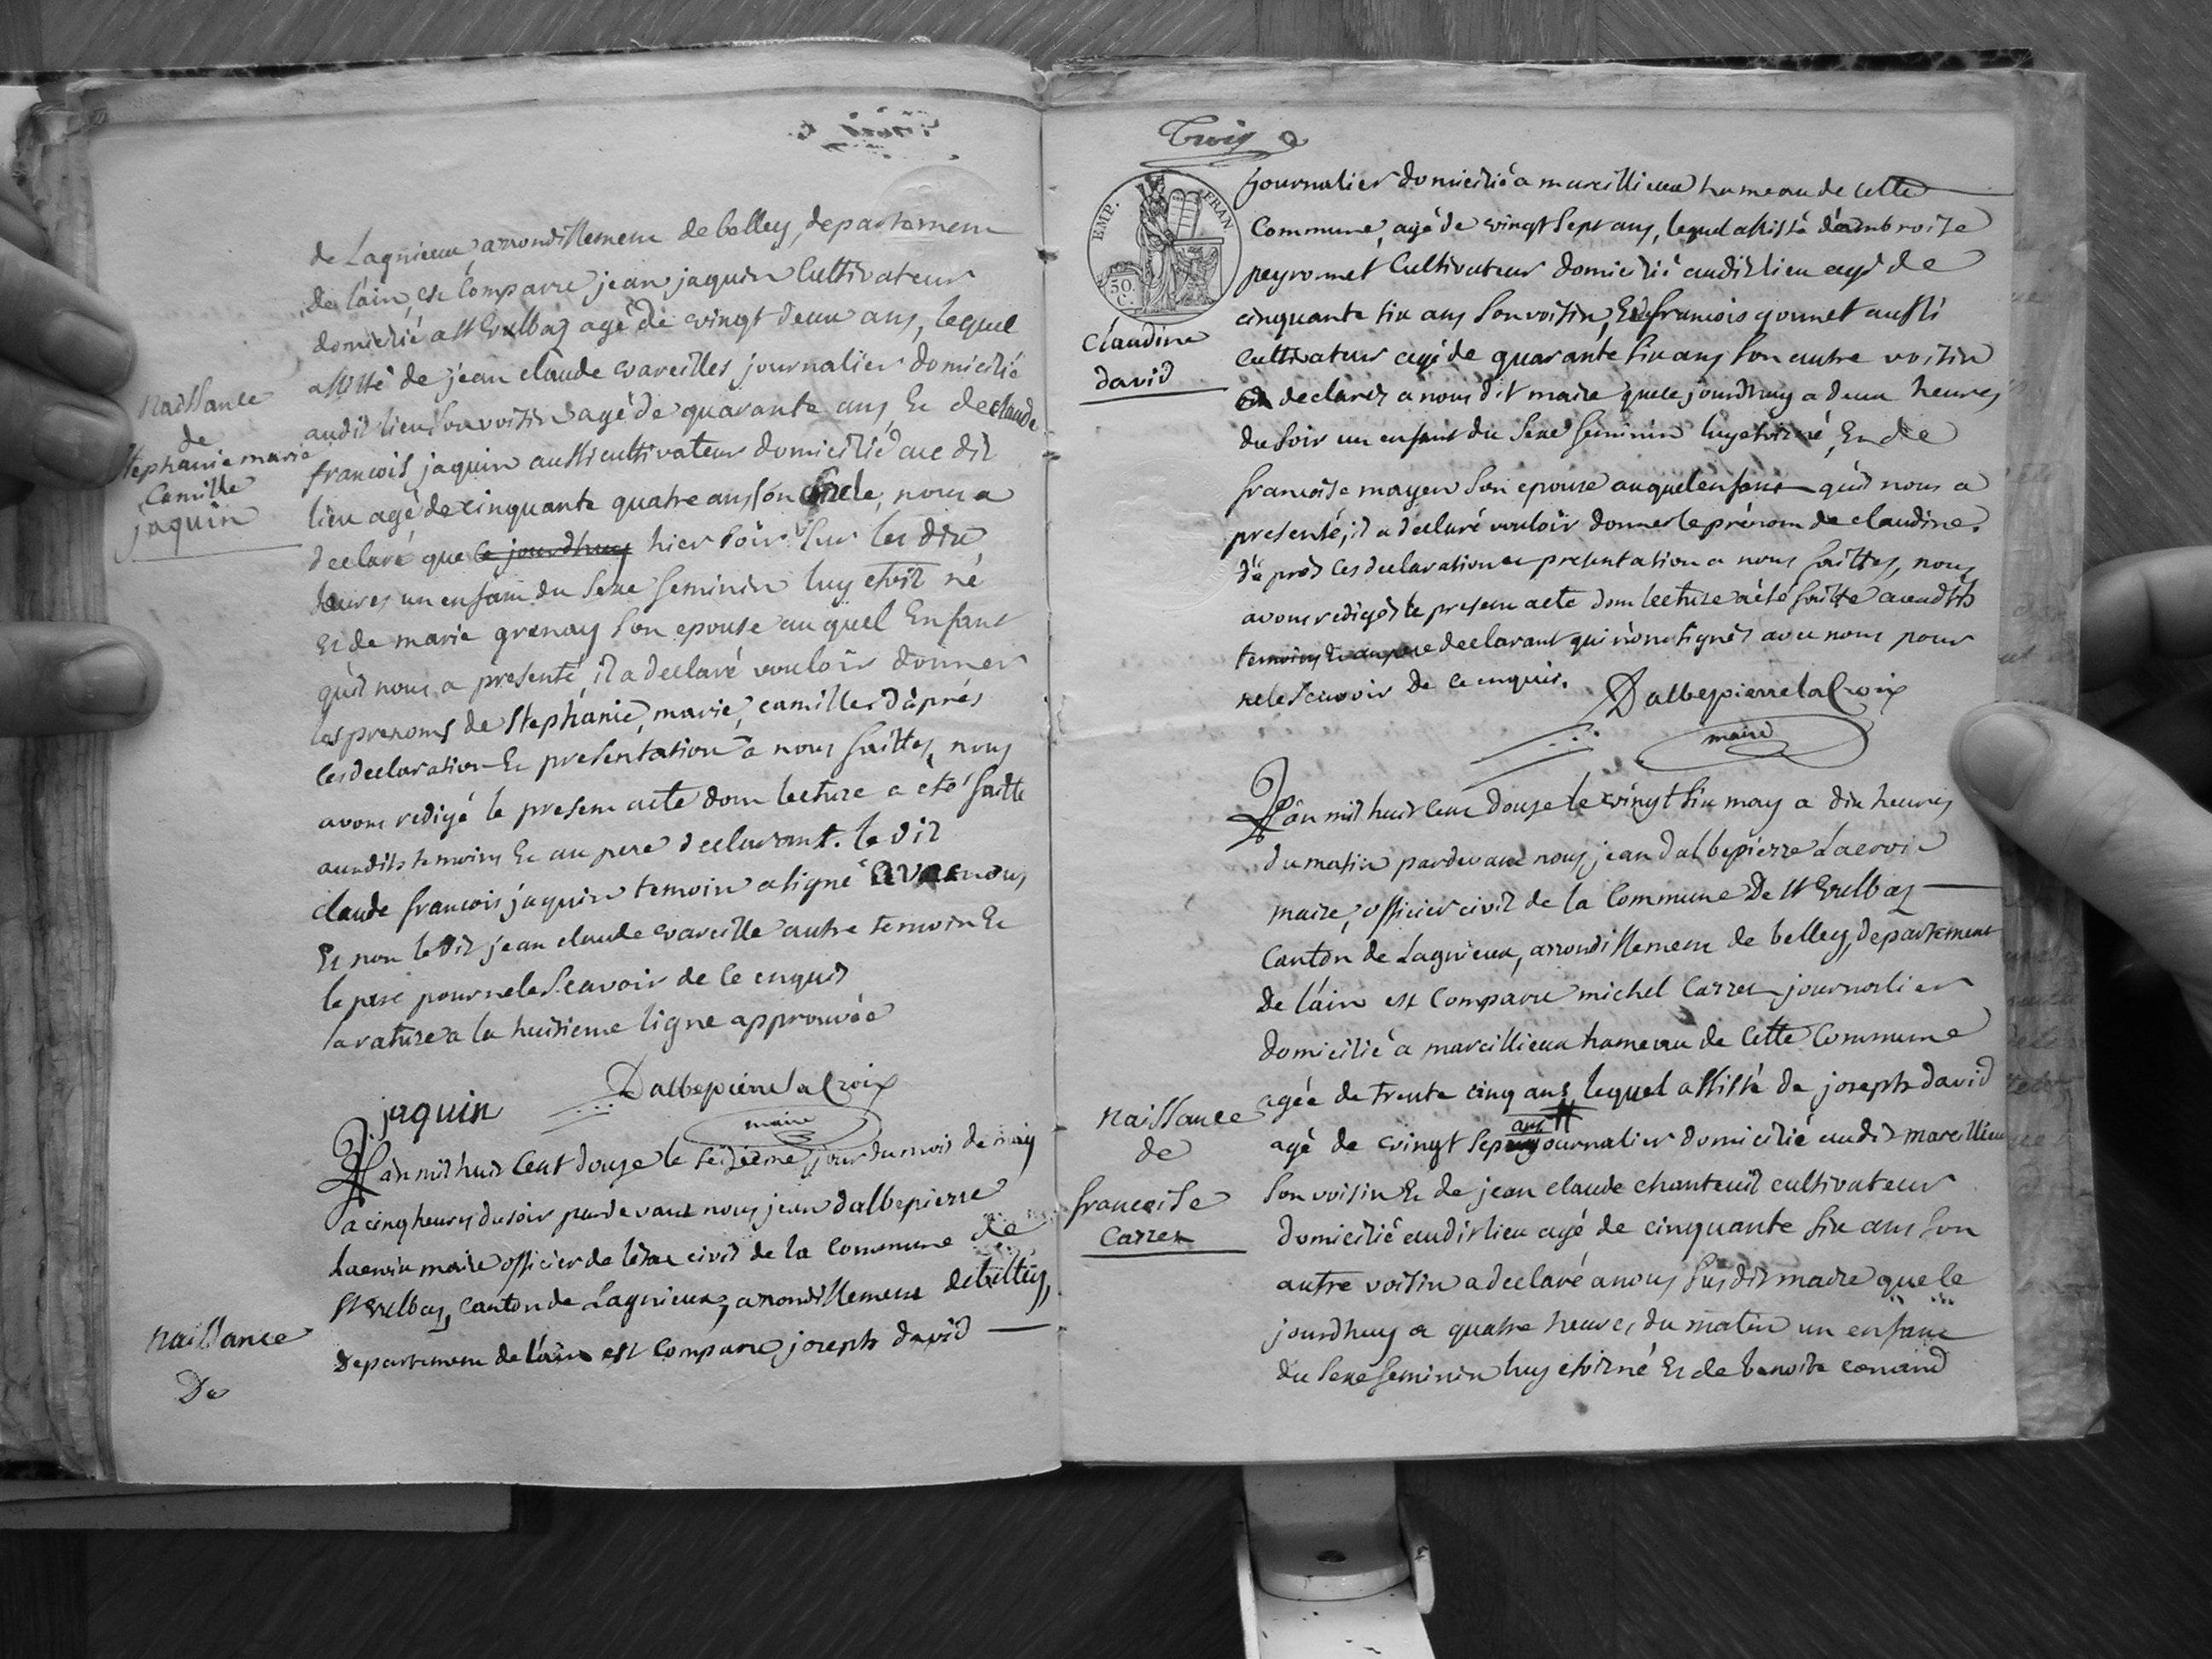 naissance
de
stephanie marie
Camille
jaquin
de Lagnieux, arrondissement de belley, departement
de l'ain, est Comparu jean jaquin Cultivateur
domicilié a St Vulbas agé de vingt deux ans, lequel
assisté de jean claude vareilles journalier domicilié
audit lieu son voisin agé de quarante ans, Et de claude
francois jaquin aussi cultivateur domicilié au dit
lieu agé de cinquante quatre ans son oncle, nous a
declaré que ce jourdhuy hier soir sur les dix
heures un enfant du sexe feminin luy etoit né
Et de marie grenay son epouse au quel Enfant
qu'il nous a presenté il a declaré vouloir donner
les prenoms de stephanie, marie, camille, d'aprés
ces declaration Et presentation a nous faittes, nous
avons redigé le present acte dont lecture a été faitte
auxdits temoins Et au pere declarant. le dit
claude francois jaquin temoin a signé avec nous
Et non le dit jean claude vareille autre temoin Et
le pere pour ne le Scavoir de ce enquis
la rature a la huitieme ligne approuvée
jaquin
Dalbepierre laCroix
maire
naissance
De
L'an mil huit Cent douze le seizieme jour du mois de may
a cinq heures du soir pardevant nous jean dalbepierre
Lacroix maire officier de l'etat civil de la Commune de
St Vulbas, canton de Lagnieux, arrondissement de belley,
Departement de l'ain est Comparu joseph david
Trois
EMP. FRAN
50.
C.
claudine
david
journalier domicilié a marcillieux hameau de cette
Commune, agé de vingt sept ans, lequel assisté d'ambroise
peyronnet Cultivateur domicilié audit lieu agé de
cinquante six ans son voisin, Et francois gonnet aussi
Cultivateur agé de quarante six ans son autre voisin
a declaré a nous dit maire que ce jourdhuy a deux heures
du soir un enfant du sexe feminin luy etoit né, Et de
francoise mayen son epouse auquel enfant qu'il nous a
presenté, il a declaré vouloir donner le prénom de claudine.
d'après ces declaration et presentation a nous faittes, nous
avons redigés le present acte dont lecture a été faitte auxdits
temoins Et au pere declarant qui n'ont signés avec nous pour
ne le Scavoir De ce enquis.
Dalbepierre laCroix
maire
L'an mil huit Cent douze le vingt six may a dix heures
du matin pardevant nous jean dalbepierre Lacroix
maire, officier civil de la Commune De St Vulbas
Canton de Lagnieux, arrondissement de belley, departement
de l'ain est Comparu michel Carret journalier
domicilié a marcillieux hameau de Cette Commune
naissance
de
francoise
Carret
agée de trente cinq ans, lequel assisté de joseph david
ans
agé de vingt sept journalier domicilié audit marcillieux
son voisin Et de jean claude chanteuil cultivateur
domicilié audit lieu agé de cinquante six ans son
autre voisin a declaré a nous susdit maire que le
jourdhuy a quatre heures du matin un enfant
du sexe feminin luy etoit né Et de benoite conand